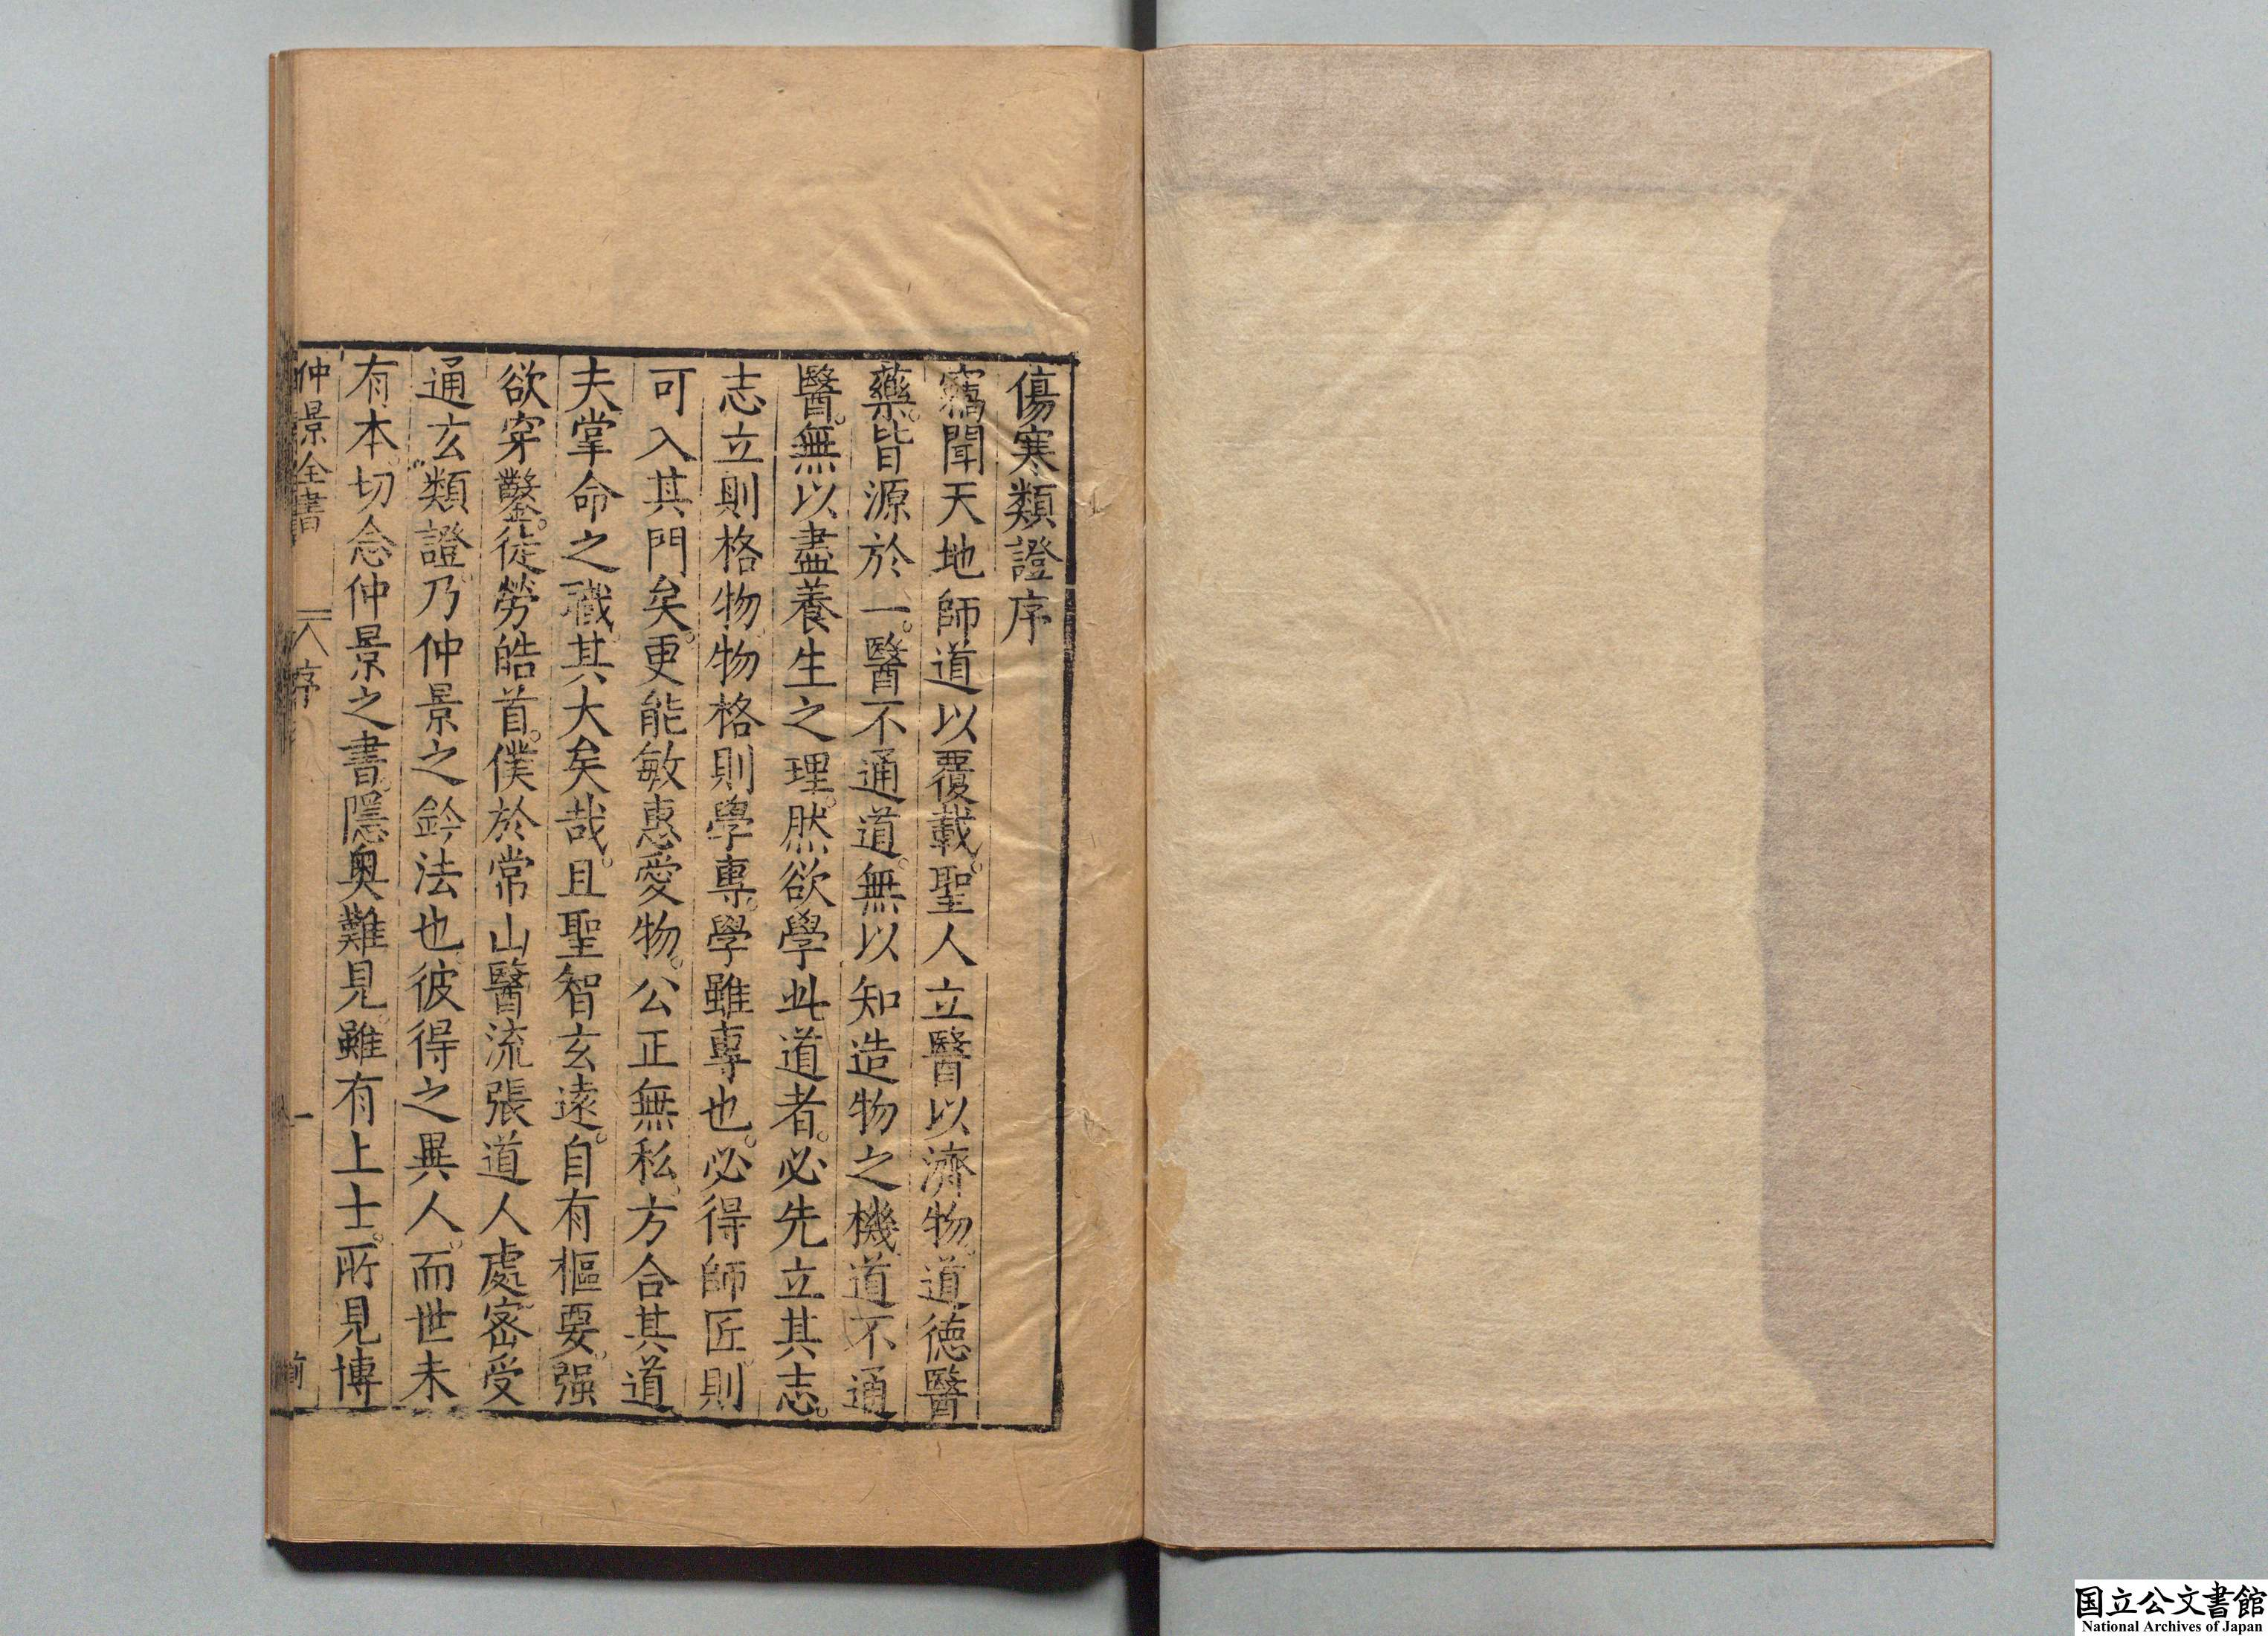 傷寒類證序
竊聞天地師道以覆載。聖人立醫以濟物。道德醫
藥。皆源於一。醫不通道。無以知造物之機。道不通
醫。無以盡養生之理。然欲學此道者。必先立其志。
志立則格物。物格則學專。學雖專也。必得師匠。則
可入其門矣。更能敏惠愛物。公正無私。方合其道
夫掌命之職。其大矣哉。且聖智玄遠。自有樞要。强
欲穿鑿。徒勞皓首。僕於常山醫流張道人處。密受
通玄類證。乃仲景之鈐法也。彼得之異人。而世未
有本。切念仲景之書。隱奧難見。雖有上士。所見博
仲景全書 序 一
国立公文書館
National Archives of Japan